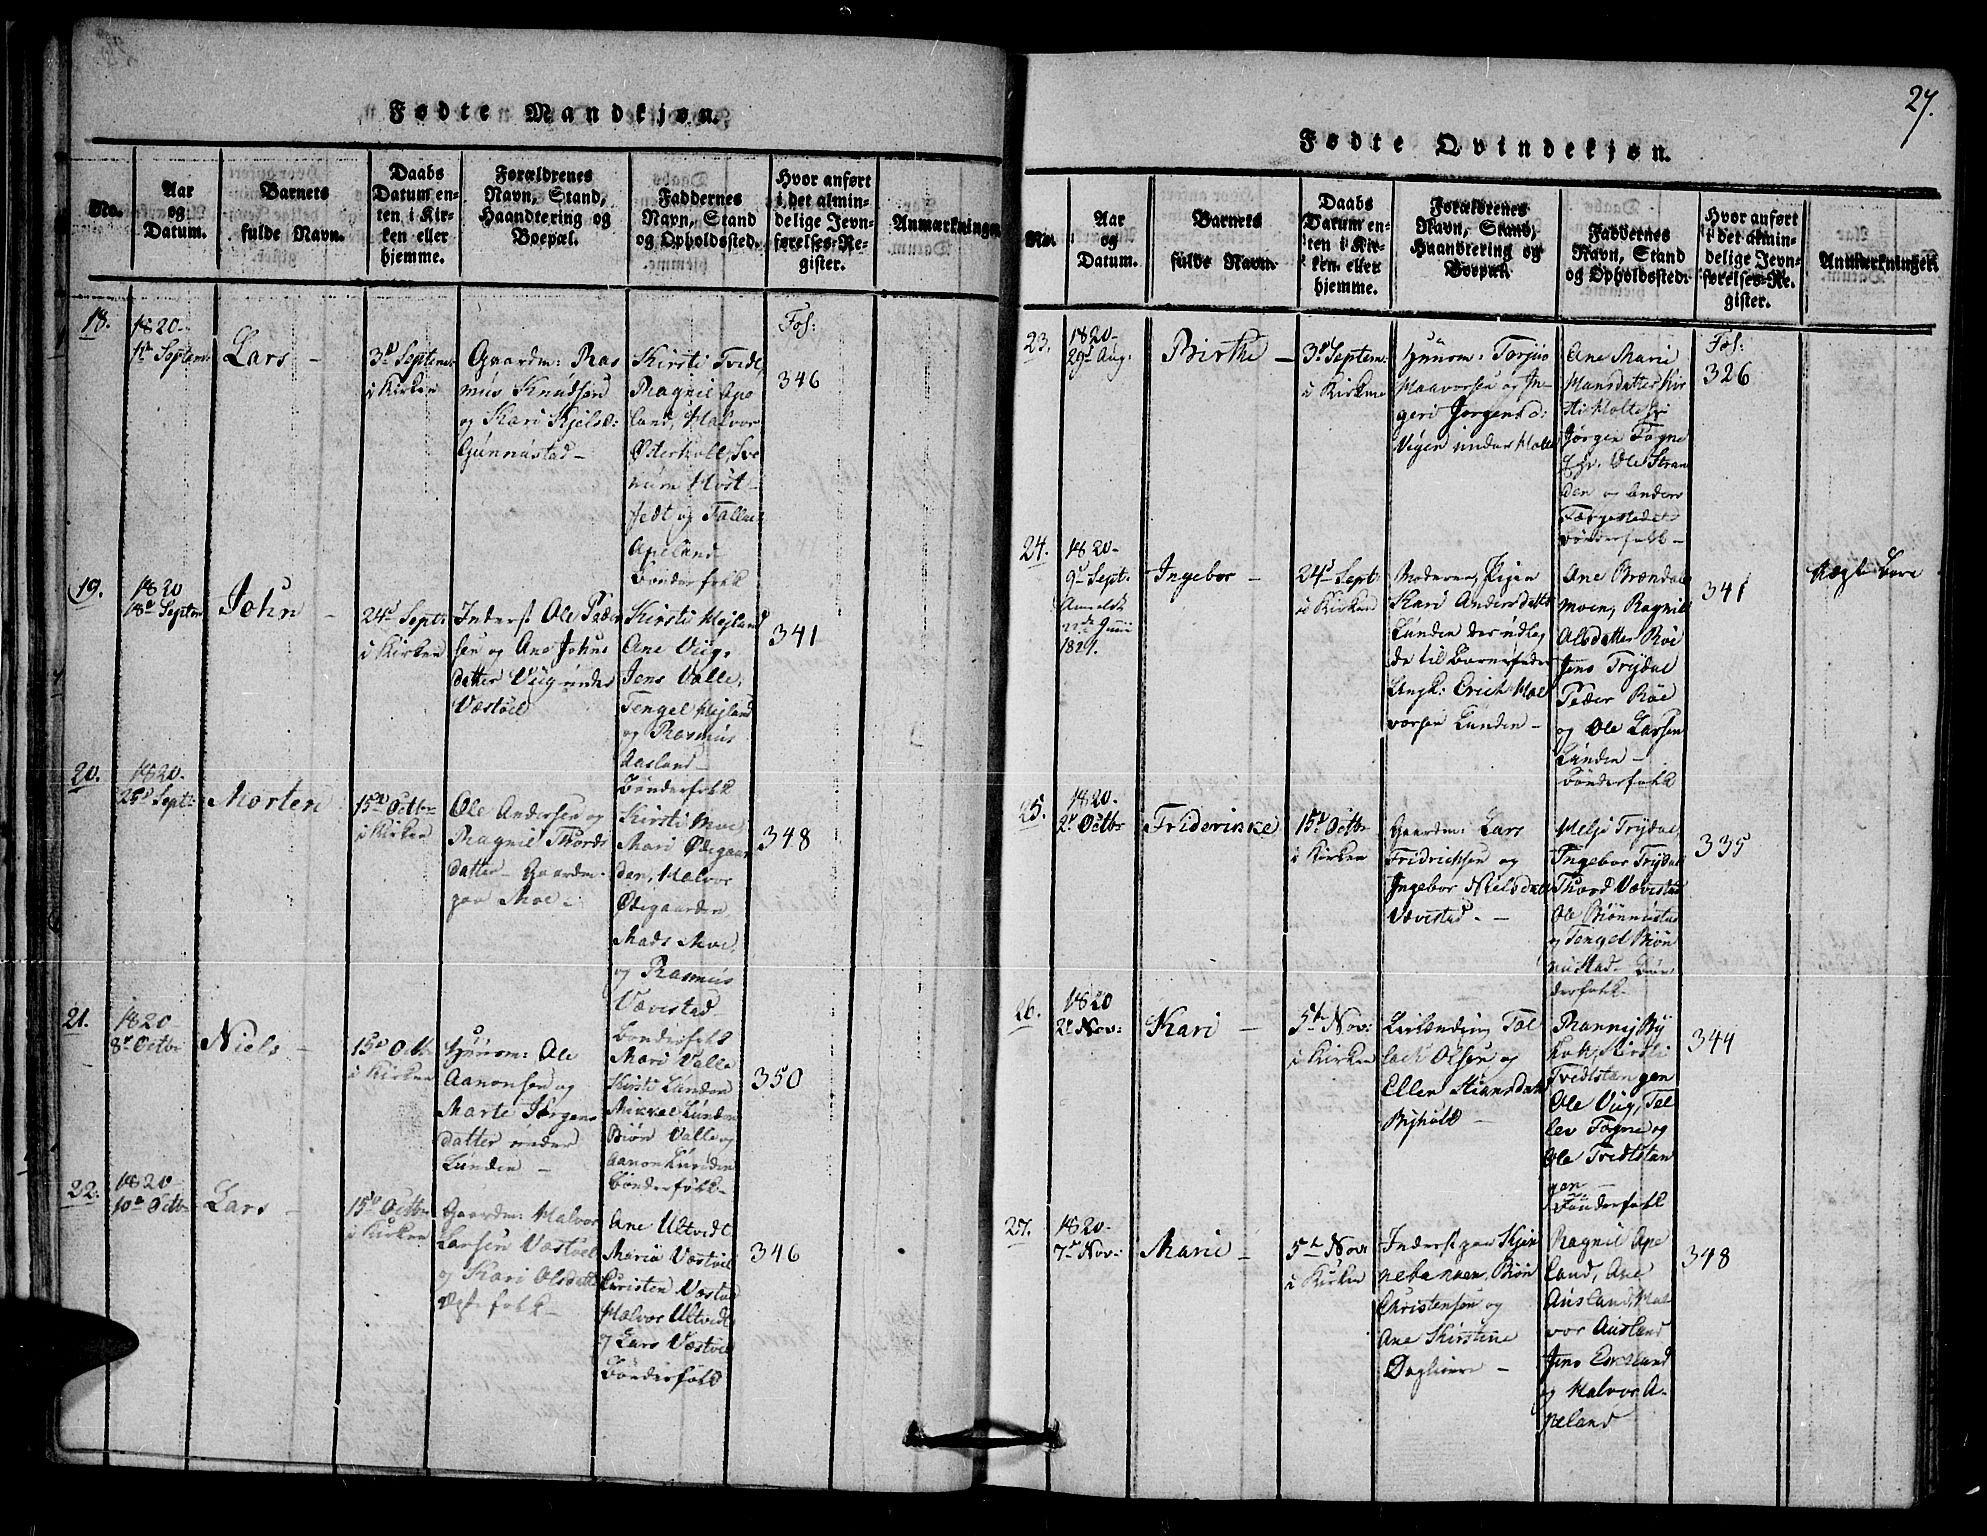 Fødte Mandkjøn.
No.
Aar
og
Datum.
Barnets
fulde Navn.
Daabs
Datum en-
ten i Kir-
ken eller
hjemme.
Forældrenes
Navn, Stand,
Haandtering og
Boepæl.
Faddernes
Navn, Stand
og Opholdssted.
Hvor anført
i det almin-
delige Jevn-
førelses-Re-
gister.
Anmærkninger
18.
1820
1st Septem:
Lars
3d Septem:
i Kirken
Gaardm: Ras
mus Knudsen
og Kari Kjelsd:
Gunnastad
Kirsti Tvidt,
Ragnil Ape
land, Halvor
Østerholt,
og Talle
Apeland
Bønderfolk
Fol:
346
19.
1820
18d Septbr
John
24d Septr
i Kirken
Inderst Ole Peder
sen og Ane Johns
datter Viig under
Væstøel
Kirsti Mejland
Ane Viig,
Jens Valle,
Tengel Mejland
og Rasmus
Aasland
Bønderfolk
341
20.
1820
25d Septr
Morten
15d Octbr
i Kirken
Ole Andersen og
Ragnil Thords
datter Gaardm.
paa Moe
Kirsti Moe,
Mari Ødegaar
den, Halvor
Ødegaarden
Mads Moe,
og Rasmus
Vævestad
Bønderfolk
348
21.
1820
8d Octbr
Niels
15d Octbr
i Kirken
Huusm: Ole
Aanonsen og
Marte Jørgens
datter under
Lunden
Mari Valle
Kirsti Lunden
Mikkel Lunden
Biørn Valle og
Aanon Lunden
Bønderfolk
350
22.
1820
10d Octbr
Lars
15d Octbr
i Kirken
Gaardm: Halvor
Larsen Væstøel
og Kari Olsdatter
Ægtefolk
Ane Ultvidt
Maria Væstøel
Christen Væstøel
Halvor Ultvidt
og Lars Væstøel
Bønderfolk
346
27.
Fødte Qvindekjøn.
No.
Aar
og
Datum.
Barnets
fulde Navn.
Daabs
Datum en-
ten i Kir-
ken eller
hjemme.
Forældrenes
Navn, Stand,
Haandtering og
Boepæl.
Faddernes
Navn, Stand
og Opholdssted.
Hvor anført
i det almin-
delige Jevn-
førelses-Re-
gister.
Anmærkninger.
23.
1820
29d Aug:
Birthe
3d Septem:
i Kirken
Huusm: Torjus
Haavorsen og In
geri Jørgensd:
Vigen under Holte
Ane Marie
Hansdatter Kir
sti Holte
Jørgen Fogne
Ole Stran
den og Anders
Færgestedet
Bønderfolk
Fol:
326
24.
1820
9d Sept:
Anmeldt
Juni
1821.
Ingebor
24d Septr
i Kirken
Moderen, Pigen
Kari Andersdatter
Lunden der udlag
de til Barnefader
Ungk: Erich Hal
vorsen Lunden
Ane Brændal
moen, Ragnil
Alsdatter Røe
Jens Trydal
Peder Røe
og Ole Larsen
Lunden
Bønderfolk
341
Uægte Barn
25.
1820
2d Octbr
Friderikke
15d Octbr
i Kirken
Gaardm: Lars
Fridrichsen og
Ingebor Nielsdatter
Vævestad.
Helje Trydal,
Ingebor Trydal
Thord Vævestad
Ole Biønnestad
og Tengel Biøn
nestad Bøn
derfolk
335
26.
1820
2d Nov:
Kari
5d Nov:
i Kirken
Leilending Tal
lach Olsen og
Ellen Stiansdatter
Byholt
Ranney By
holt, Kirsti
Tvedtstangen
Ole Viig, Tal
lev Fogne og
Ole Tvedtstan
gen
Bønderfolk
344
27.
1820
7d Nov:
Marie
5d Nov:
i Kirken
Inderst paa Skjen
nebakken, Biørn
Christensen og
Ane Kirstine
Dagleiere
Ragnil Ape
land, Ane
Ausland, Hal
vor Ausland
Jens Eskeland
og Halvor A-
peland
348